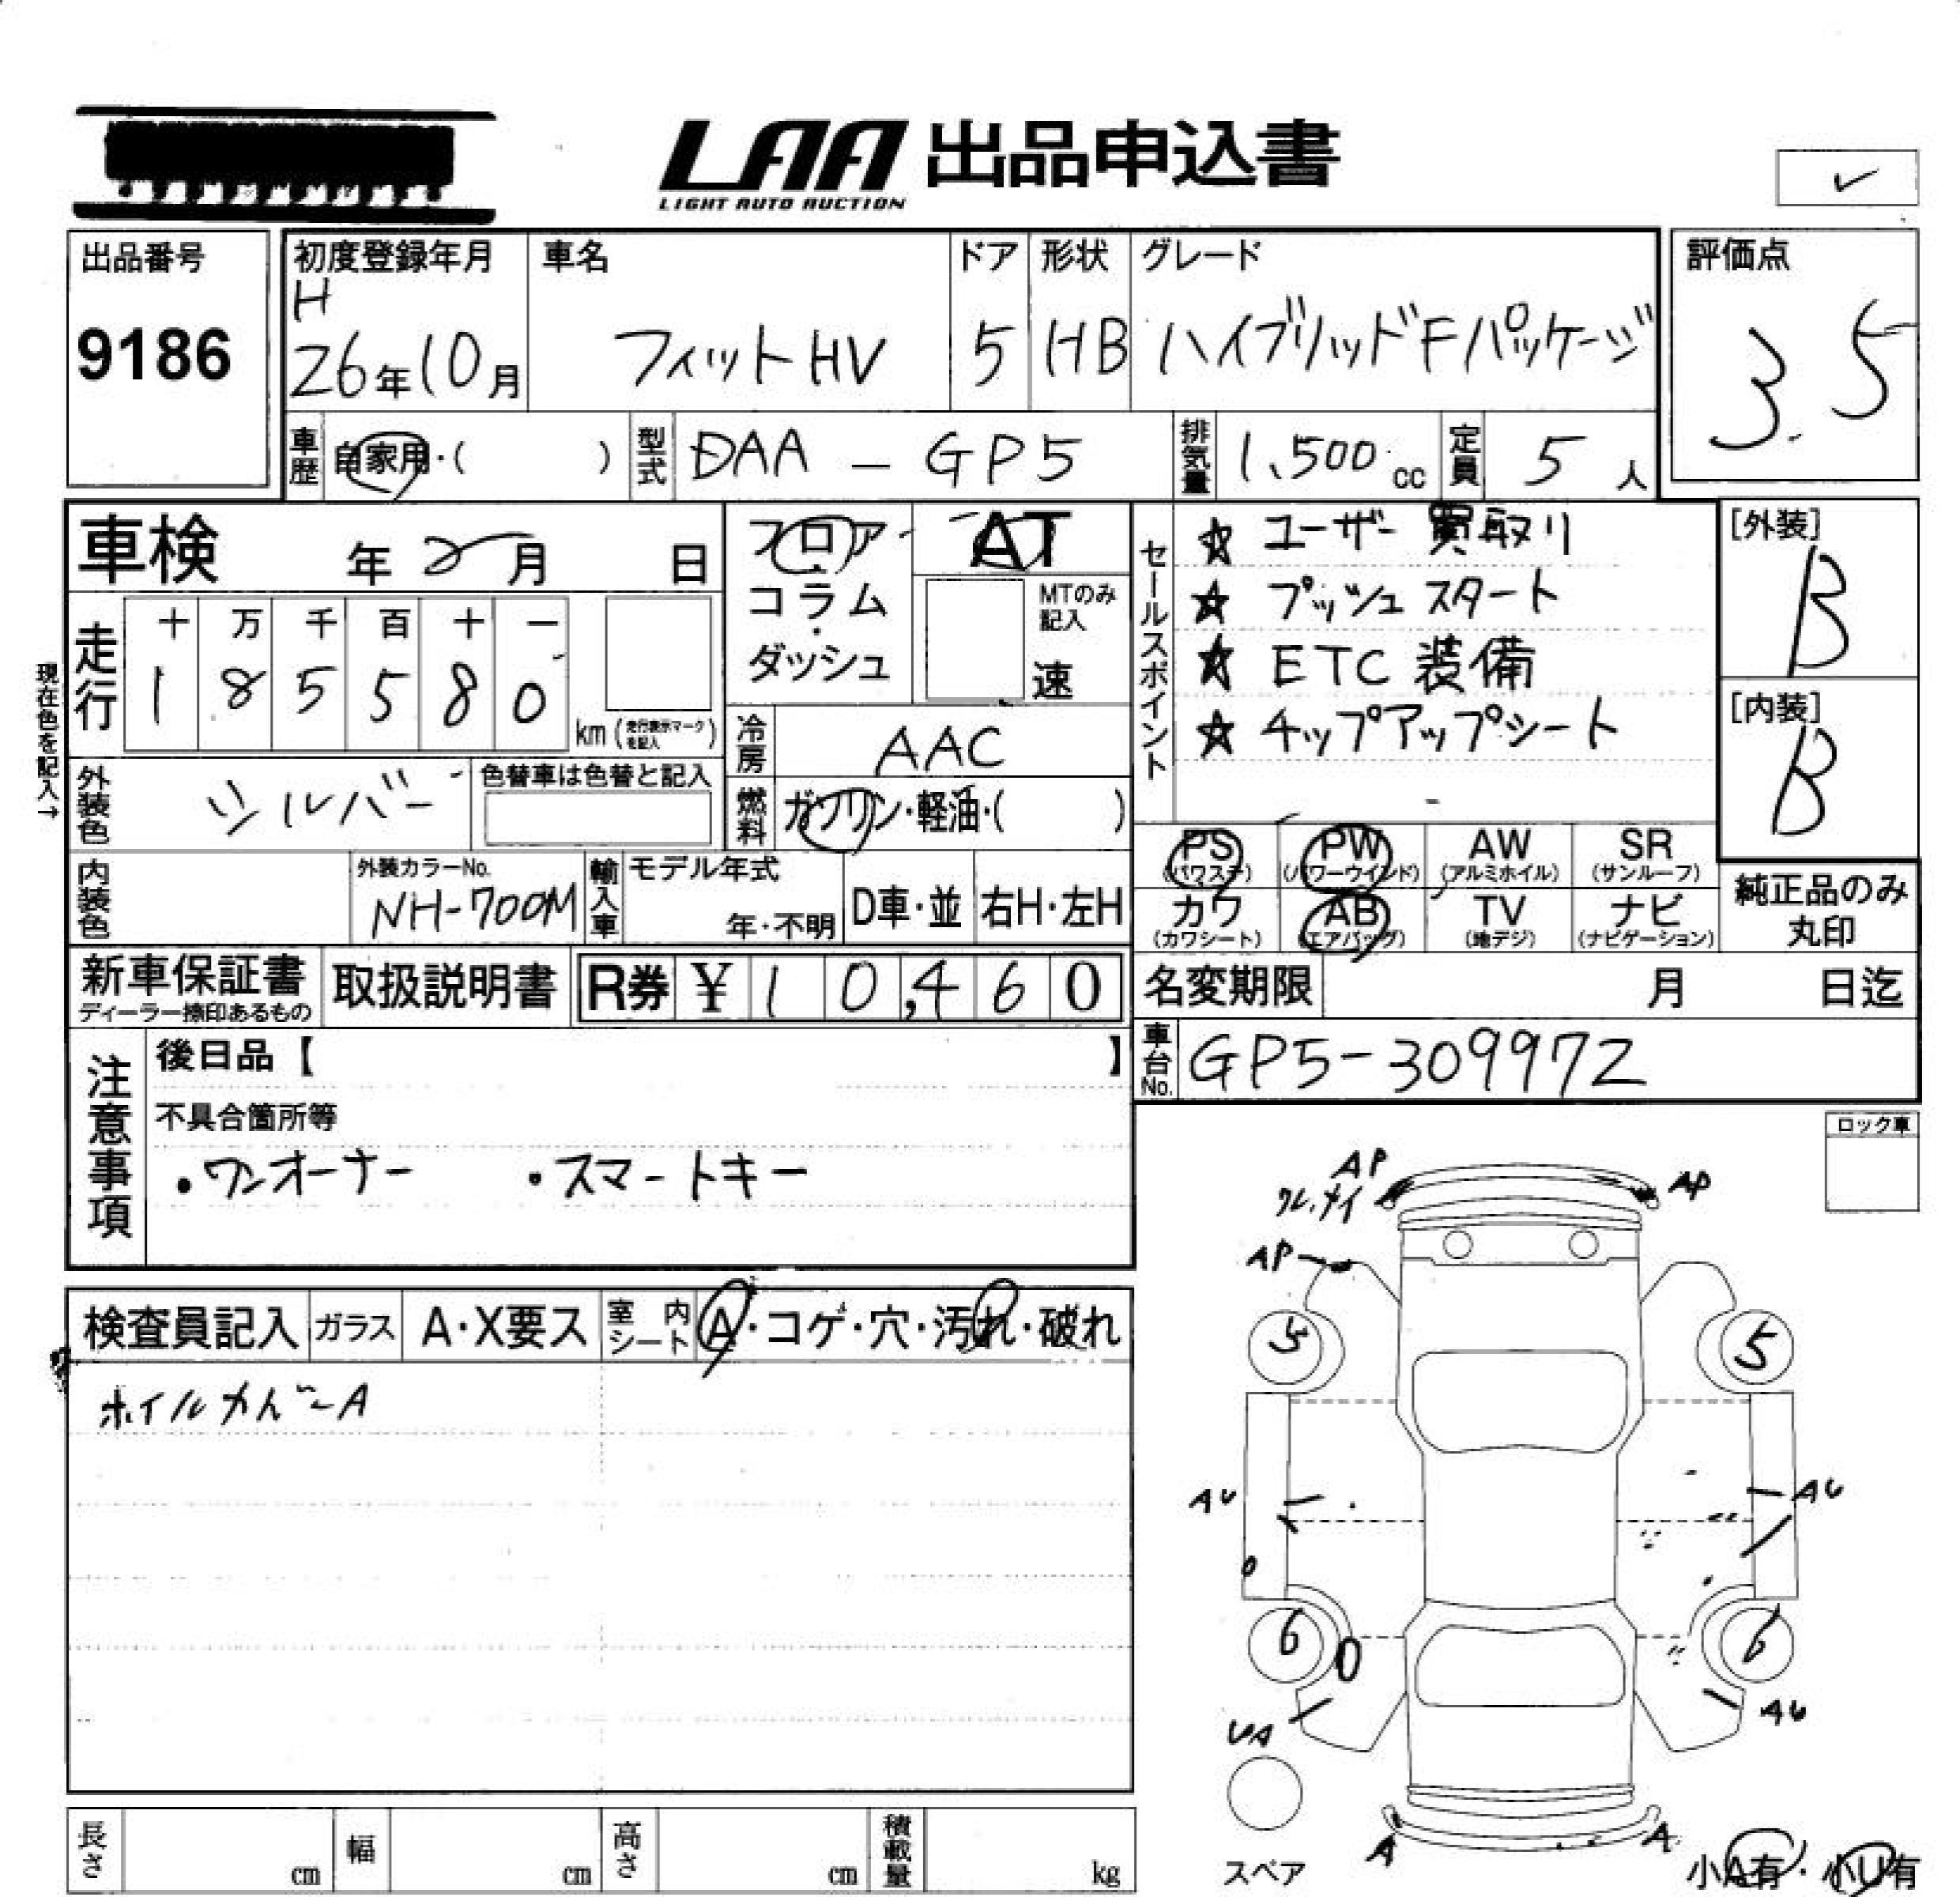 LAA 出品申込書
LIGHT AUTO AUCTION
出品番号
9186
初度登録年月
H
26年10月
車名
フィットHV
ドア
5
形状
HB
グレード
ハイブリッドFパッケージ
評価点
3.5
車歴
自家用・( )
型式
DAA - GP5
排気量
1,500 cc
定員
5 人
車検 年 月 日
フロア・コラム・ダッシュ
AT
MTのみ記入
速
セールスポイント
☆ ユーザー買取り
☆ プッシュスタート
☆ ETC装備
☆ チップアップシート
[外装]
B
[内装]
B
現在色を記入→
走行
十 万 千 百 十 一
1 8 5 5 8 0
km(走行表示マークを記入)
冷房
AAC
外装色
シルバー
色替車は色替と記入
燃料
ガソリン・軽油・( )
内装色
外装カラーNo.
NH-700M
輸入車
モデル年式
年・不明
D車・並
右H・左H
PS
(パワステ)
PW
(パワーウインド)
AW
(アルミホイル)
SR
(サンルーフ)
カワ
(カワシート)
AB
(エアバッグ)
TV
(地デジ)
ナビ
(ナビゲーション)
純正品のみ
丸印
新車保証書
ディーラー捺印あるもの
取扱説明書
R券 ¥ 10,460
名変期限 月 日迄
車台No.
GP5-309972
注意事項
後日品【 】
不具合箇所等
・ワンオーナー ・スマートキー
ロック車
検査員記入
ガラス
A・X要ス
室内シート
A・コゲ・穴・汚れ・破れ
ホイルカバーA
AP
AP
AP
5
5
AU
AU
6
6
UA
AU
A
A
スペア
小A有・小U有
長さ cm
幅 cm
高さ cm
積載量 kg